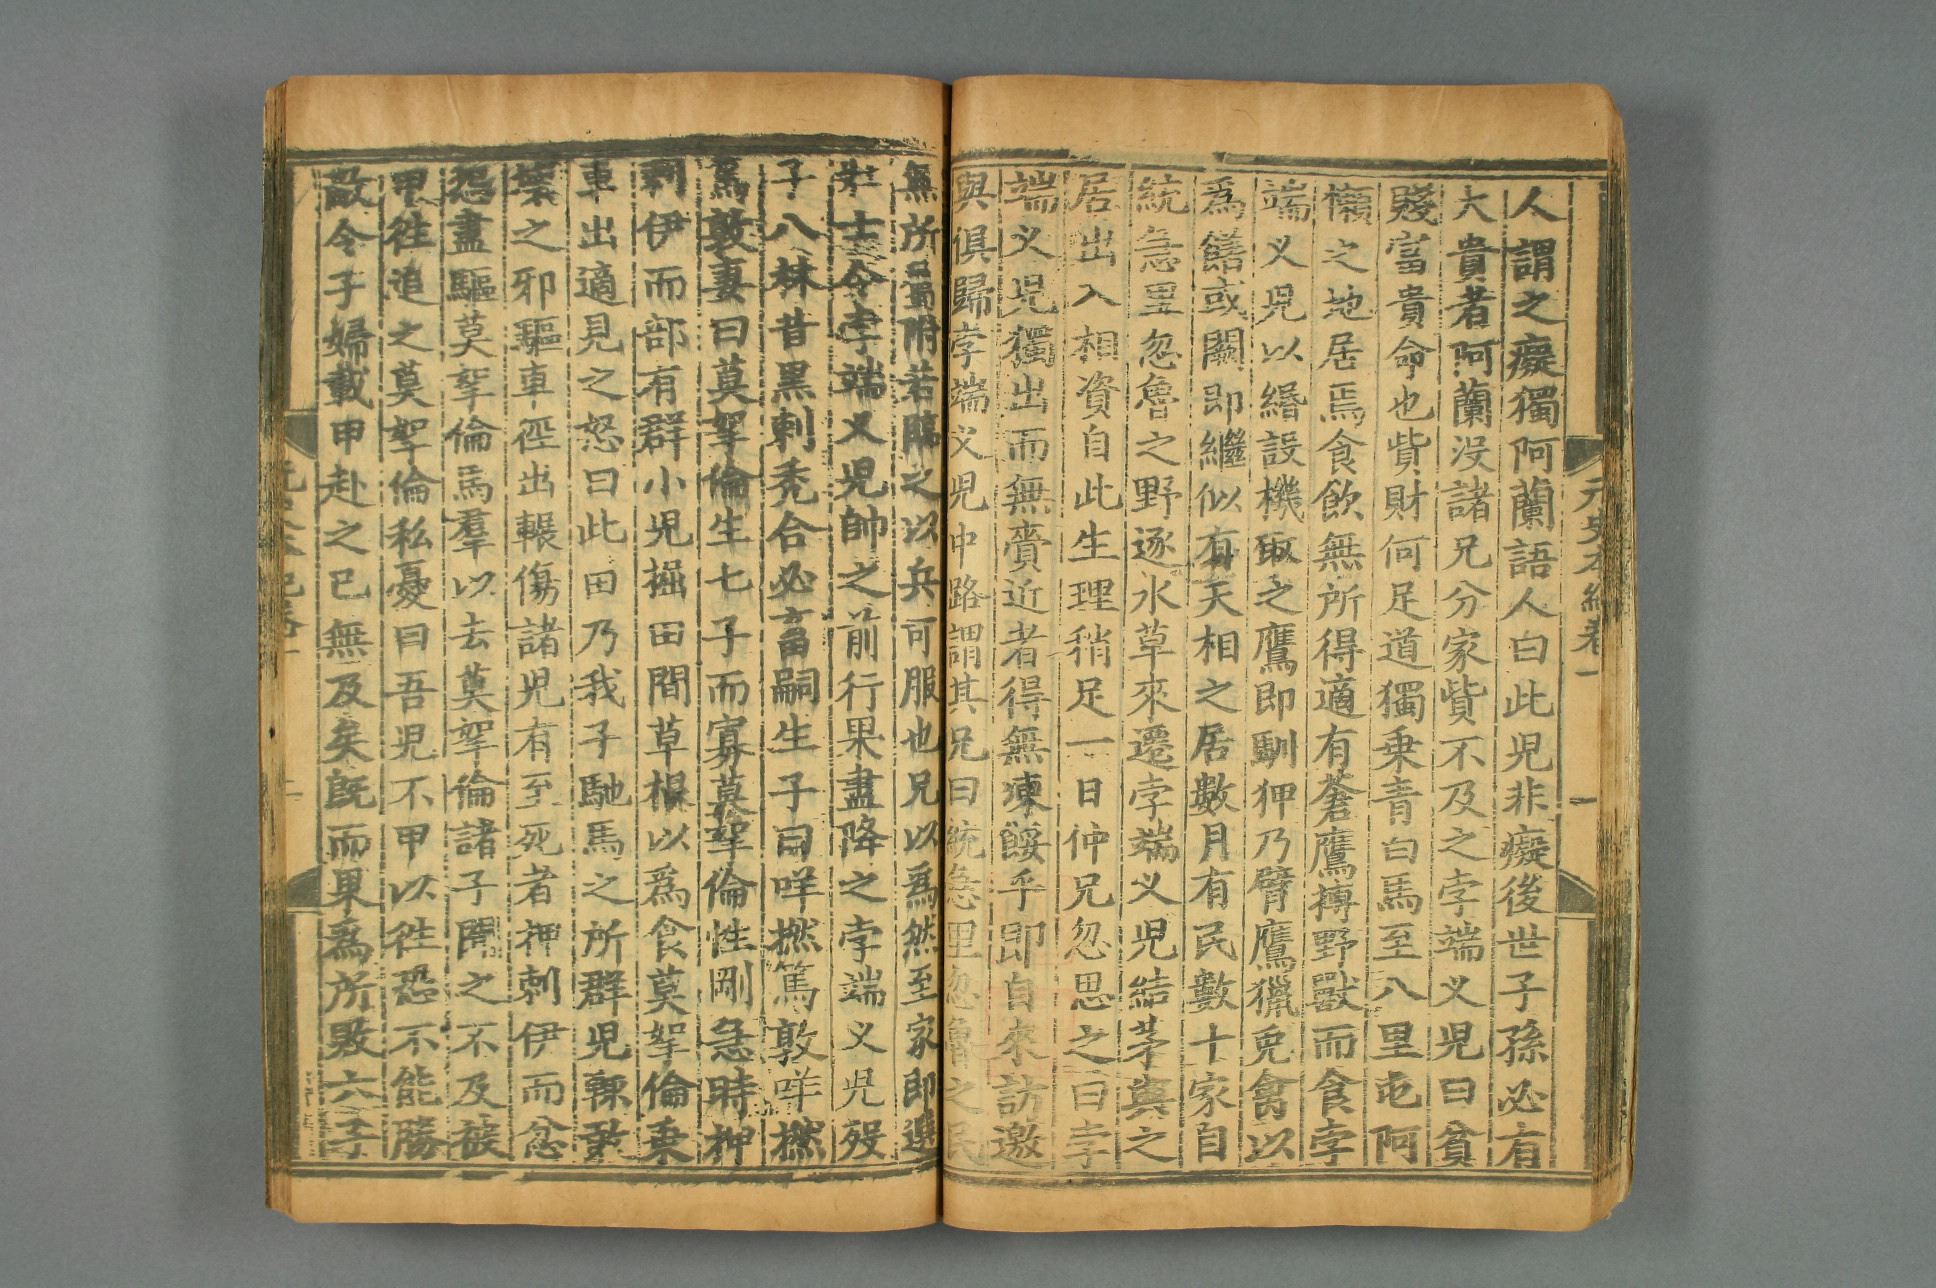 元史本紀卷一 一
人謂之癡獨阿蘭語人曰此兒非癡後世子孫必有
大貴者阿蘭沒諸兄分家貲不及之孛端义兒曰貧
賤富貴命也貲財何足道獨乘青白馬至八里屯阿
懶之地居焉食飲無所得適有蒼鷹搏野獸而食孛
端义兒以緡設機取之鷹即馴狎乃臂鷹獵兔禽以
為饍或闕即繼似有天相之居數月有民數十家自
統急里忽魯之野逐水草來遷孛端义兒結茅與之
居出入相資自此生理稍足一日仲兄忽思之曰孛
端义兒獨出而無齎近者得無凍餒乎即自來訪邀
與俱歸孛端义兒中路謂其兄曰統急里忽魯之民
無所屬附若臨之以兵可服也兄以為然至家即選
壯士令孛端义兒帥之前行果盡降之孛端义兒歿
子八林昔黑剌禿合必畜嗣生子曰咩撚篤敦咩撚
篤敦妻曰莫挐倫生七子而寡莫挐倫性剛急時押
剌伊而部有群小兒掘田間草根以為食莫挐倫乘
車出適見之怒曰此田乃我子馳馬之所群兒輒敢
壞之邪驅車徑出輾傷諸兒有至死者押剌伊而忿
怨盡驅莫挐倫馬羣以去莫挐倫諸子聞之不及被
甲往追之莫挐倫私憂曰吾兒不甲以往恐不能勝
敵令子婦載甲赴之已無及矣既而果為所敗六子
元史本紀卷一 二